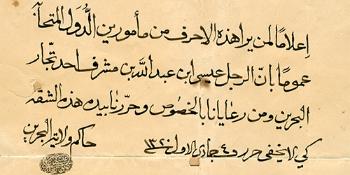 إعلامًا لمن يرا هذه الاحرف من مأمورين الدُّوَل المتحآبّة
عمومًا بانّ الرجل عيسى ابن عبدالله بن مشرف احد تجّار
البحرين ومن رعايانا بالخصُوص وحررنا بيده هذه الشقه
كي لا يخفى حرر و٤ جمادى الاول ١٣٢٠
حاكم ولاية البحرين